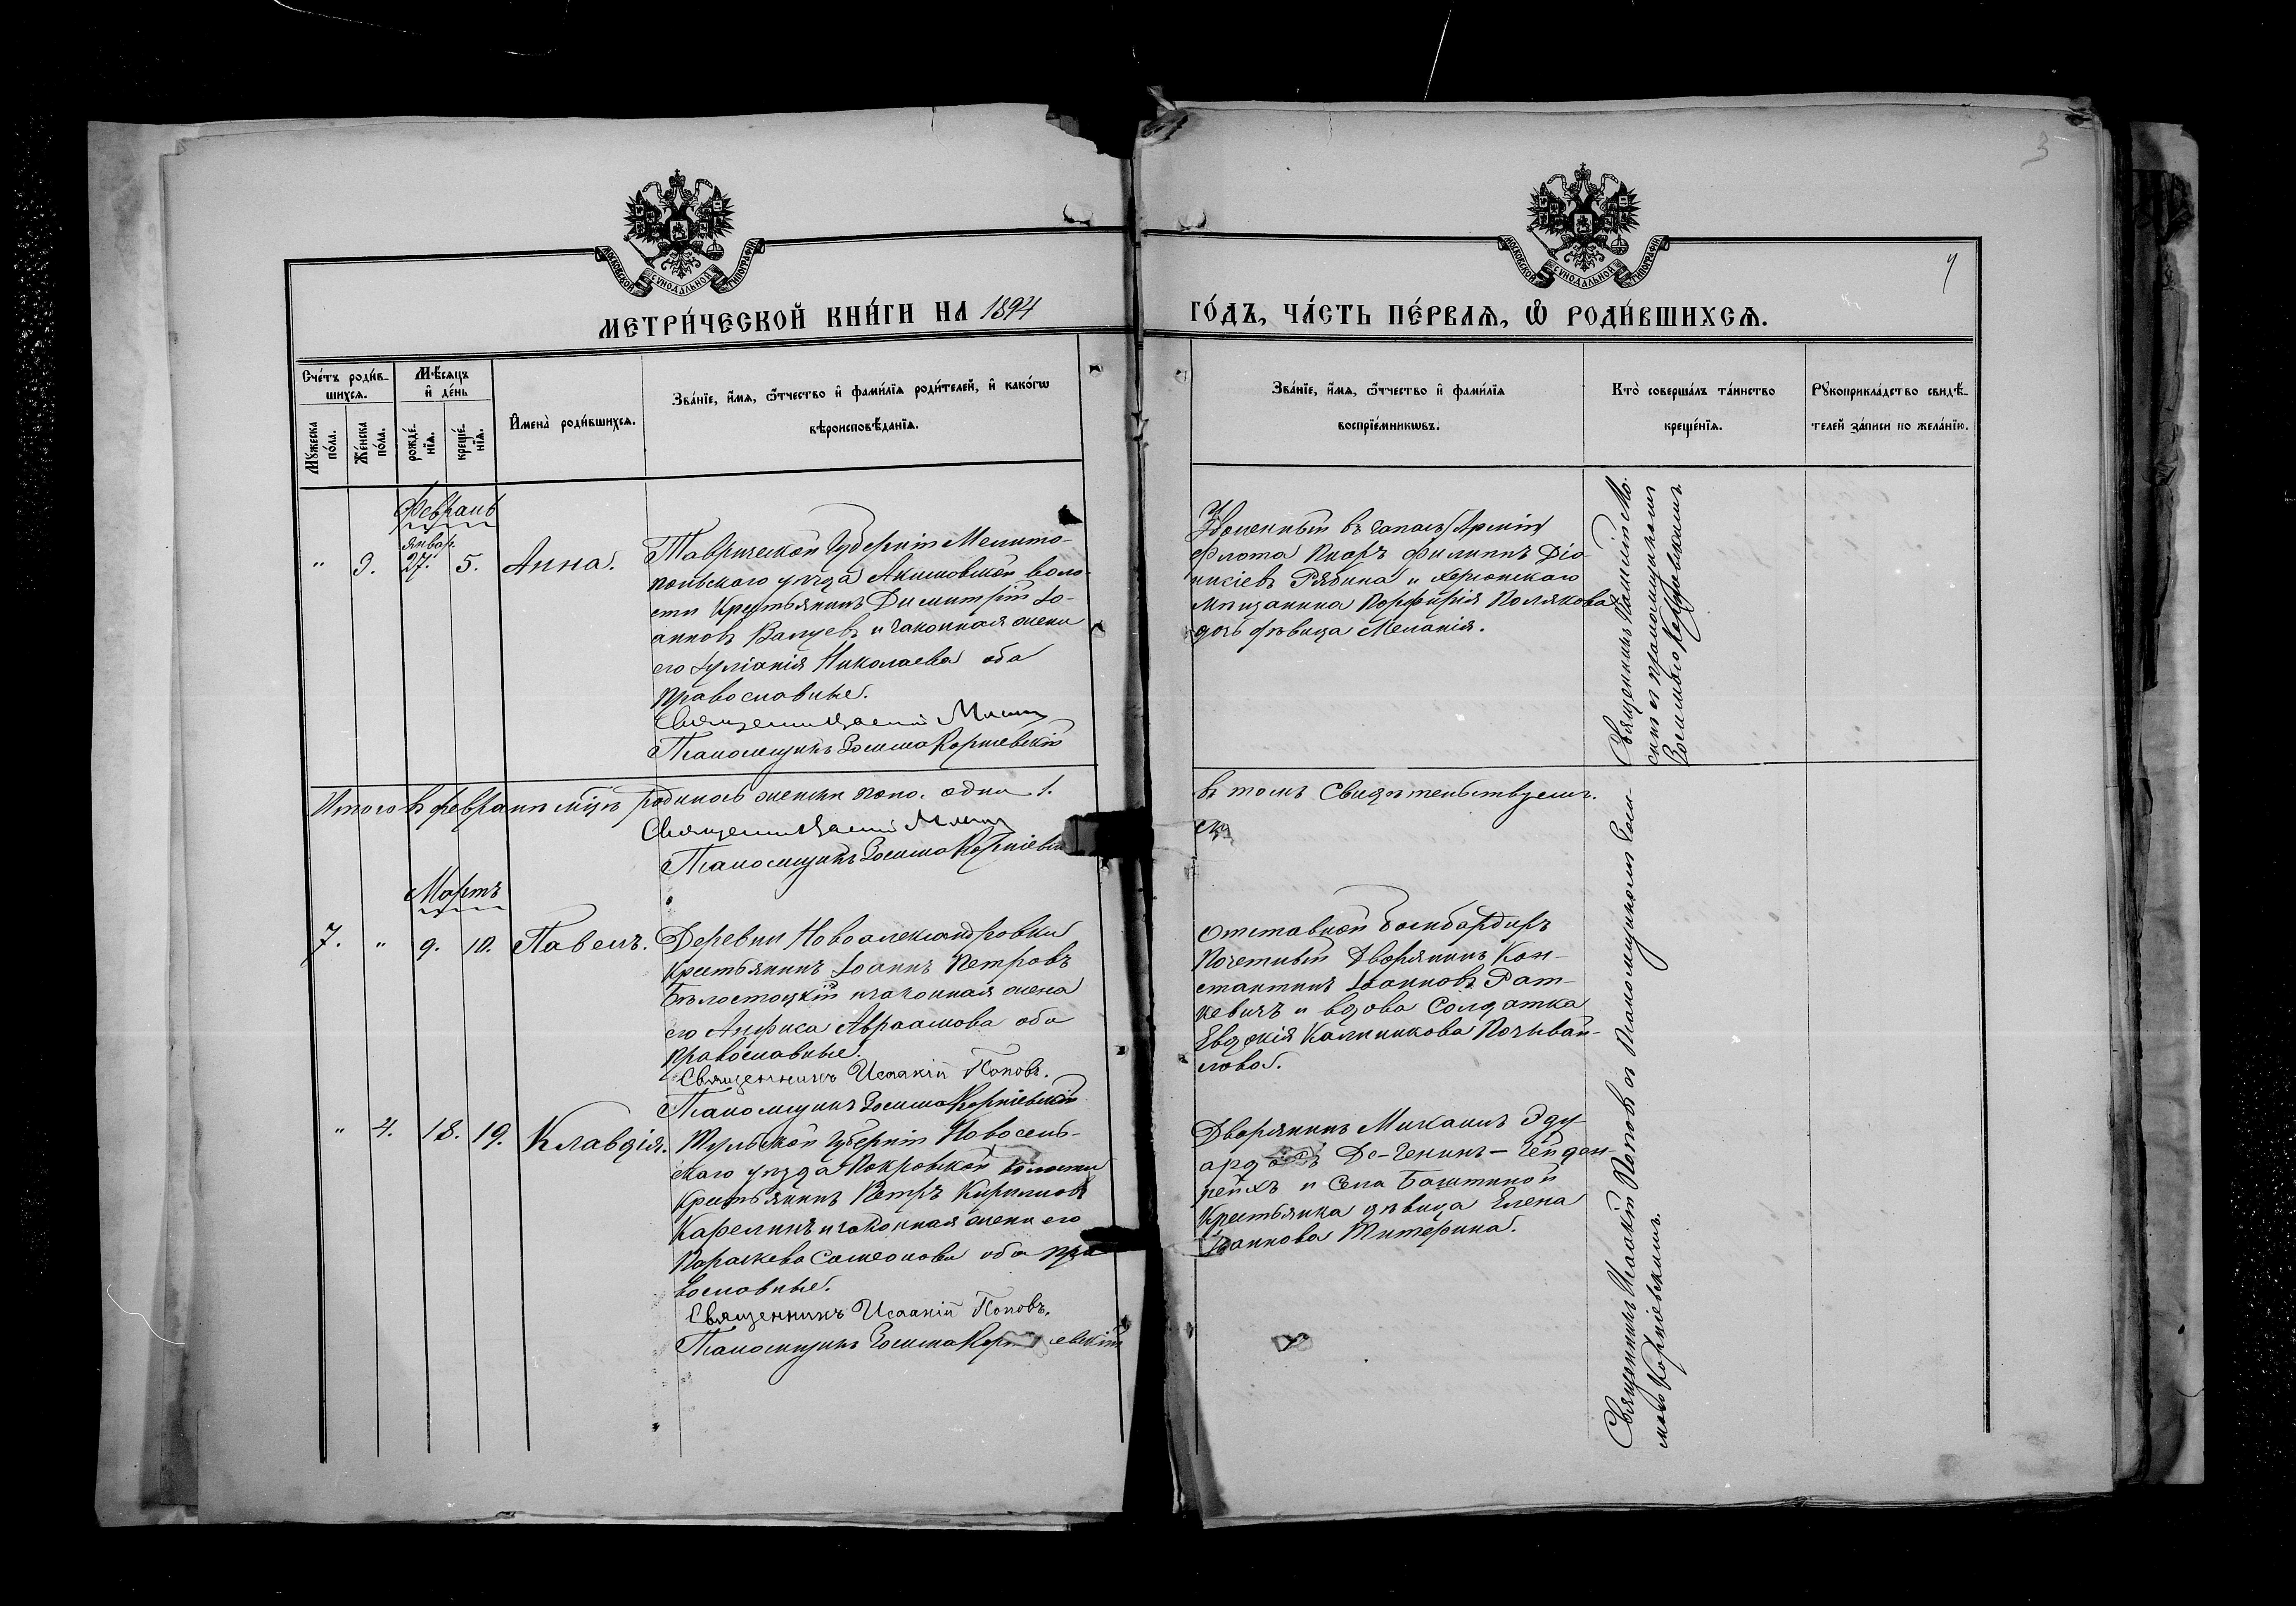 3
4
МОСКОВСКОЙ СѴНОДАЛЬНОЙ ТИПОГРАФІИ
МОСКОВСКОЙ СѴНОДАЛЬНОЙ ТИПОГРАФІИ
МЕТРИ́ЧЕСКОЙ КНИ́ГИ НА 1894
ГО́ДЪ, ЧА́СТЬ ПЕ́РВАѦ, Ѽ РОДИ́ВШИХСѦ.
Сче́тъ роди́в-
шихсѧ.
Мѣ́сѧцъ
и҆ де́нь
Мꙋ́жеска
по́ла.
Же́нска
по́ла.
рожде́-
нїѧ.
креще́-
нїѧ.
И҆мена̀ роди́вшихсѧ.
Зва́нїе, и҆́мѧ, ѻ҆́тчество и҆ фами́лїѧ роди́телей, и҆ како́гѡ
вѣроисповѣ́данїѧ.
Зва́нїе, и҆́мѧ, ѻ҆́тчество и҆ фами́лїѧ
воспрїе́мникѡвъ.
Кто̀ соверша́лъ та́инство
креще́нїѧ.
Рꙋкоприкла́дство свидѣ́-
телей за́писи по жела́нїю.
Февраль
январ.
" 3. 27. 5. Анна.
Таврической Губерніи Мелито-
польскаго уѣзда Акимовской воло-
сти Крестьянинъ Димитрій Іо-
анновъ Валуевъ и законная жена
его Іуліанія Николаева оба
православные.
Священникъ
Псаломщикъ Зосима Корніевскій
Уволенный въ запасъ Арміи
флота Писарь Филиппъ Діо-
нисіевъ Рябина и Херсонскаго
мѣщанина Порфирія Полякова
дочь дѣвица Меланія.
Священникъ
съ псаломщикомъ
Зосимою Корніевскимъ.
Итого въ февралѣ мѣсяцѣ родилось женска пола одна 1.
въ томъ Свидѣтельствуемъ.
Священникъ
Псаломщикъ Зосима Корніевскій
Мартъ
7. " 9. 10. Павелъ.
Деревни Новоалександровки
Крестьянинъ Іоаннъ Петровъ
Бѣлостоцкій и законная жена
его Анфиса Авраамова оба
православные.
Священникъ Исаакій Поповъ.
Псаломщикъ Зосима Корніевскій
Отставной бомбардиръ
Почетный Дворянинъ Кон-
стантинъ Іоанновъ Рат-
кевичъ и вдова Солдатка
Евдокія Калиникова Позывай-
лова.
" 4. 18. 19. Клавдія.
Тульской Губерніи Новосель-
скаго уѣзда Покровской волости
Крестьянинъ Петръ Кирилловъ
Карелинъ и законная жена его
Параскева Симеонова оба пра-
вославные.
Священникъ Исаакій Поповъ.
Псаломщикъ Зосима Корніевскій
Дворянинъ Михаилъ Эду-
ардовъ Де-Генинъ-Гейден-
рейхъ и Села Баштиной
Крестьянка дѣвица Елена
Іоаннова Титерина.
Священникъ Исаакій Поповъ съ Псаломщикомъ Зоси-
мою Корніевскимъ.